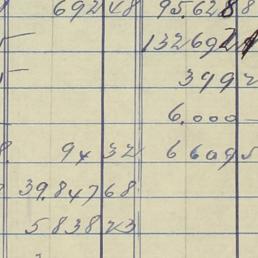 692 48 95.628 8
132692
3992
6.000 —
94 32 66095
39.847 68
5838 23